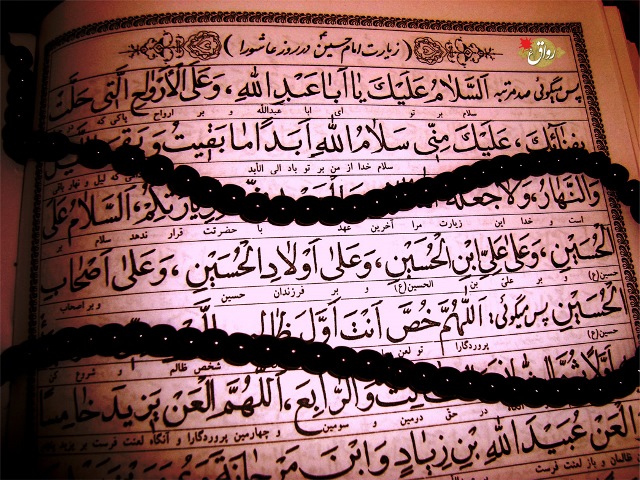 رواق
( زیارت امام حسین ع در روز عاشورا )
پس میگوئی صد مرتبه اَلسَّلامُ عَلَیْكَ یا اَبا عَبْدِ اللهِ ، وَعَلَى الْاَرْواحِ الَّتی حَلَّتْ
سلام بر تو ای ابا عبدالله و بر ارواح پاکی که
بِفِنائِكَ ، عَلَیْكَ مِنّی سَلامُ اللهِ اَبَدًا ما بَقیتُ وَ بَقِیَ اللَّیْلُ
سلام خدا از من بر تو باد الی الأبد که لیل و نهار باقی
وَالنَّهارُ، وَلا جَعَلَهُ زِیارَتِکُمْ، اَلسَّلامُ عَلَى
است و خدا این زیارت مرا آخرین عهد با حضرتت قرار ندهد سلام بر
الْحُسَیْنِ ، وَعَلى عَلِیِّ ابْنِ الْحُسَیْنِ ، وَعَلى اَوْلادِ الْحُسَیْنِ ، وَعَلى اَصْحابِ
حسین(ع) و بر علی بن الحسین(ع) و بر فرزندان حسین و بر اصحاب
الْحُسَیْنِ پس میگوئی: اَللّهُمَّ خُصَّ اَنْتَ اَوَّلَ ظالِمٍ
حسین(ع) پروردگارا تو لعن شخص ظالم و شروع کن
وَالرّابِعَ، اَللّهُمَّ الْعَنْ یَزیدَ خامِسًا
در حق دومین و سومین و چهارمین پروردگارا و آنگاه لعنت فرست بر یزید
الْعَنْ عُبَیْدَ اللهِ بْنَ زِیادٍ وَ ابْنَ مَرْجانَةَ وَ
ظالمان و باز لعنت فرست